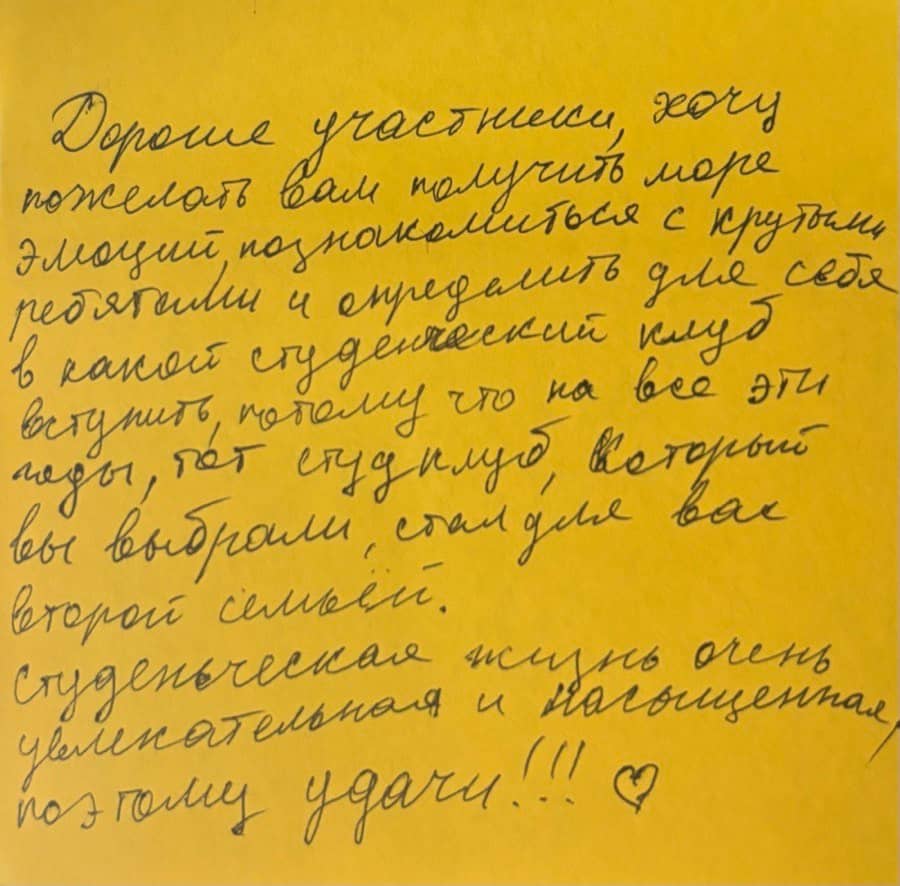 Дорогие участники, хочу
пожелать вам получить море
эмоций, познакомиться с крутыми
ребятами и определить для себя
в какой студенческий клуб
вступить, потому что на все эти
годы, тот студклуб, который
вы выбрали, стал для вас
второй семьёй.
Студеньческая жизнь очень
увлекательная и насыщенная,
поэтому удачи!!! ♡